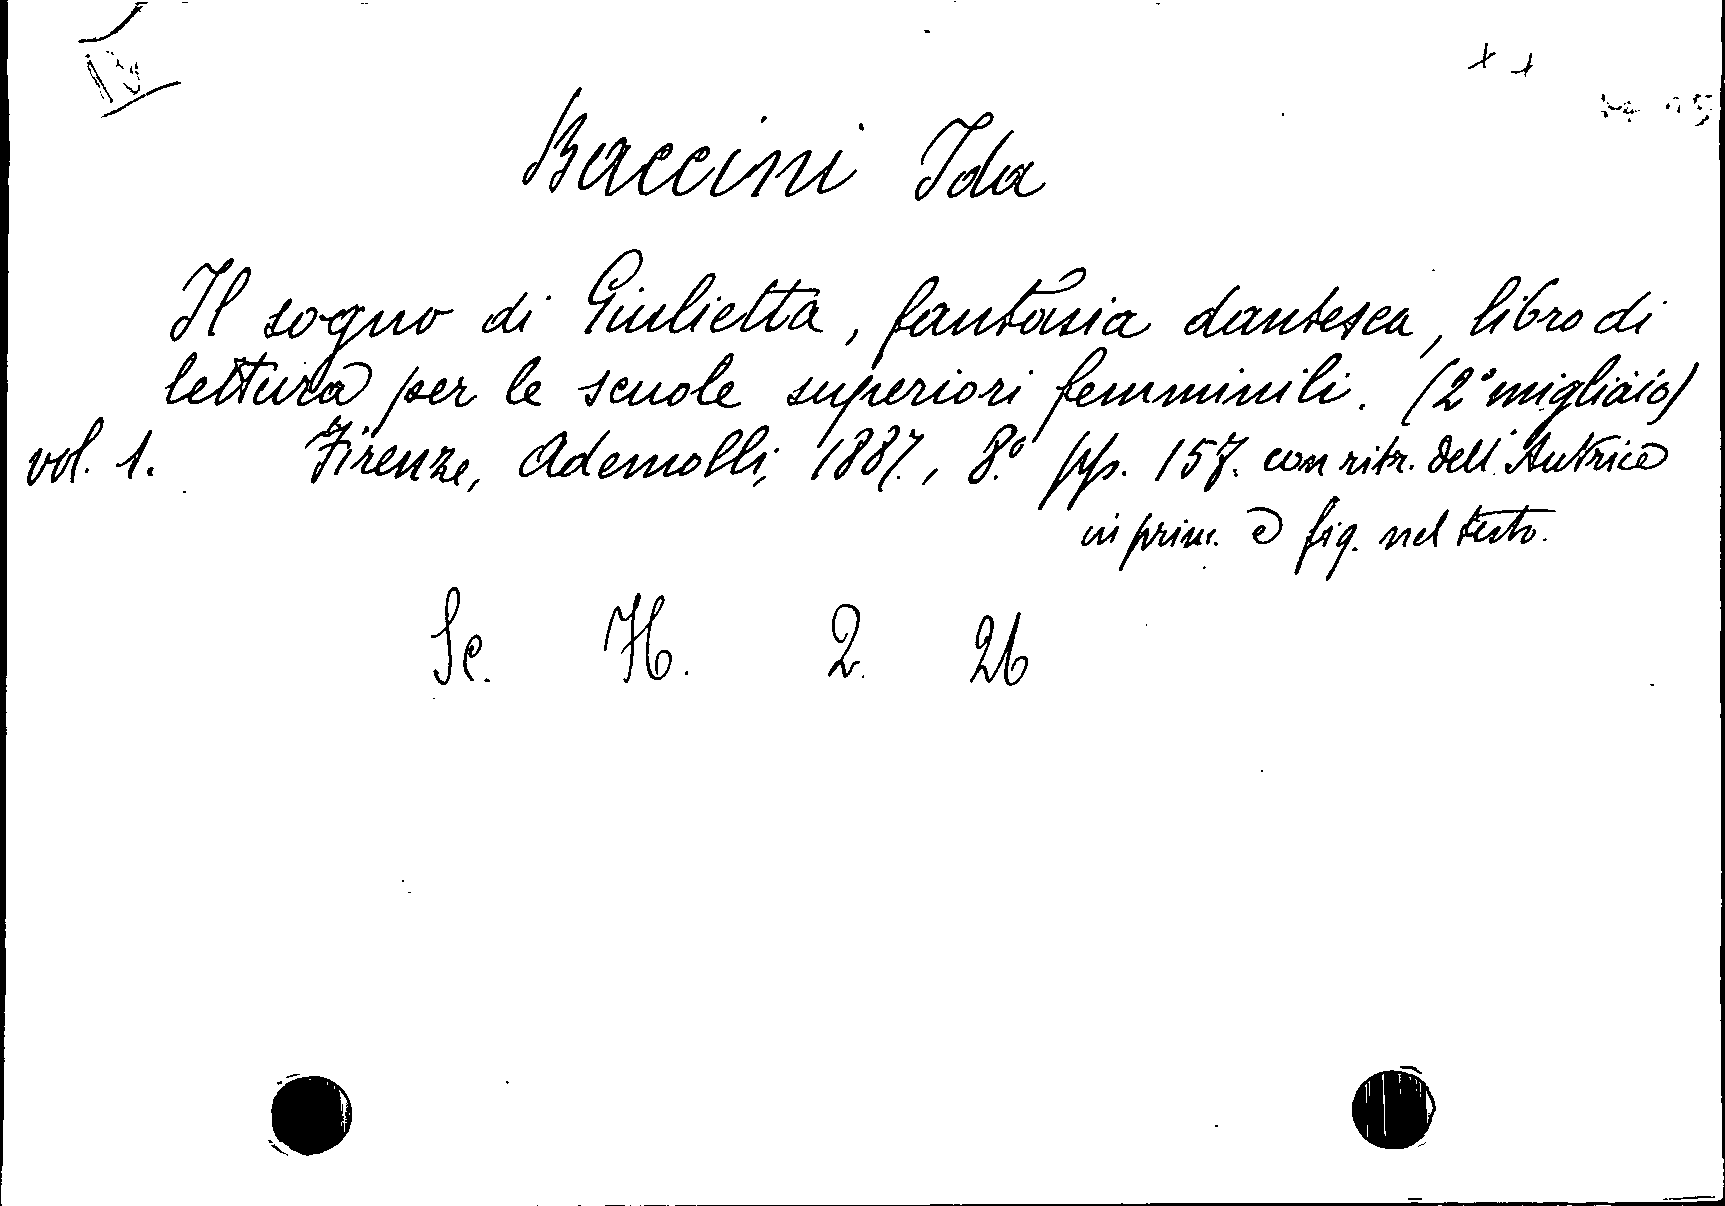 Baccini Ida
Il sogno di Giulietta, fantasia dantesca, libro di
lettura per le scuole superiori femminili. (2° migliaio)
vol. 1. Firenze, Ademolli, 1887., 8.° pp. 157. con ritr. dell'Autrice
in prim. e fig. nel testo.
Sc. H. 2. 26